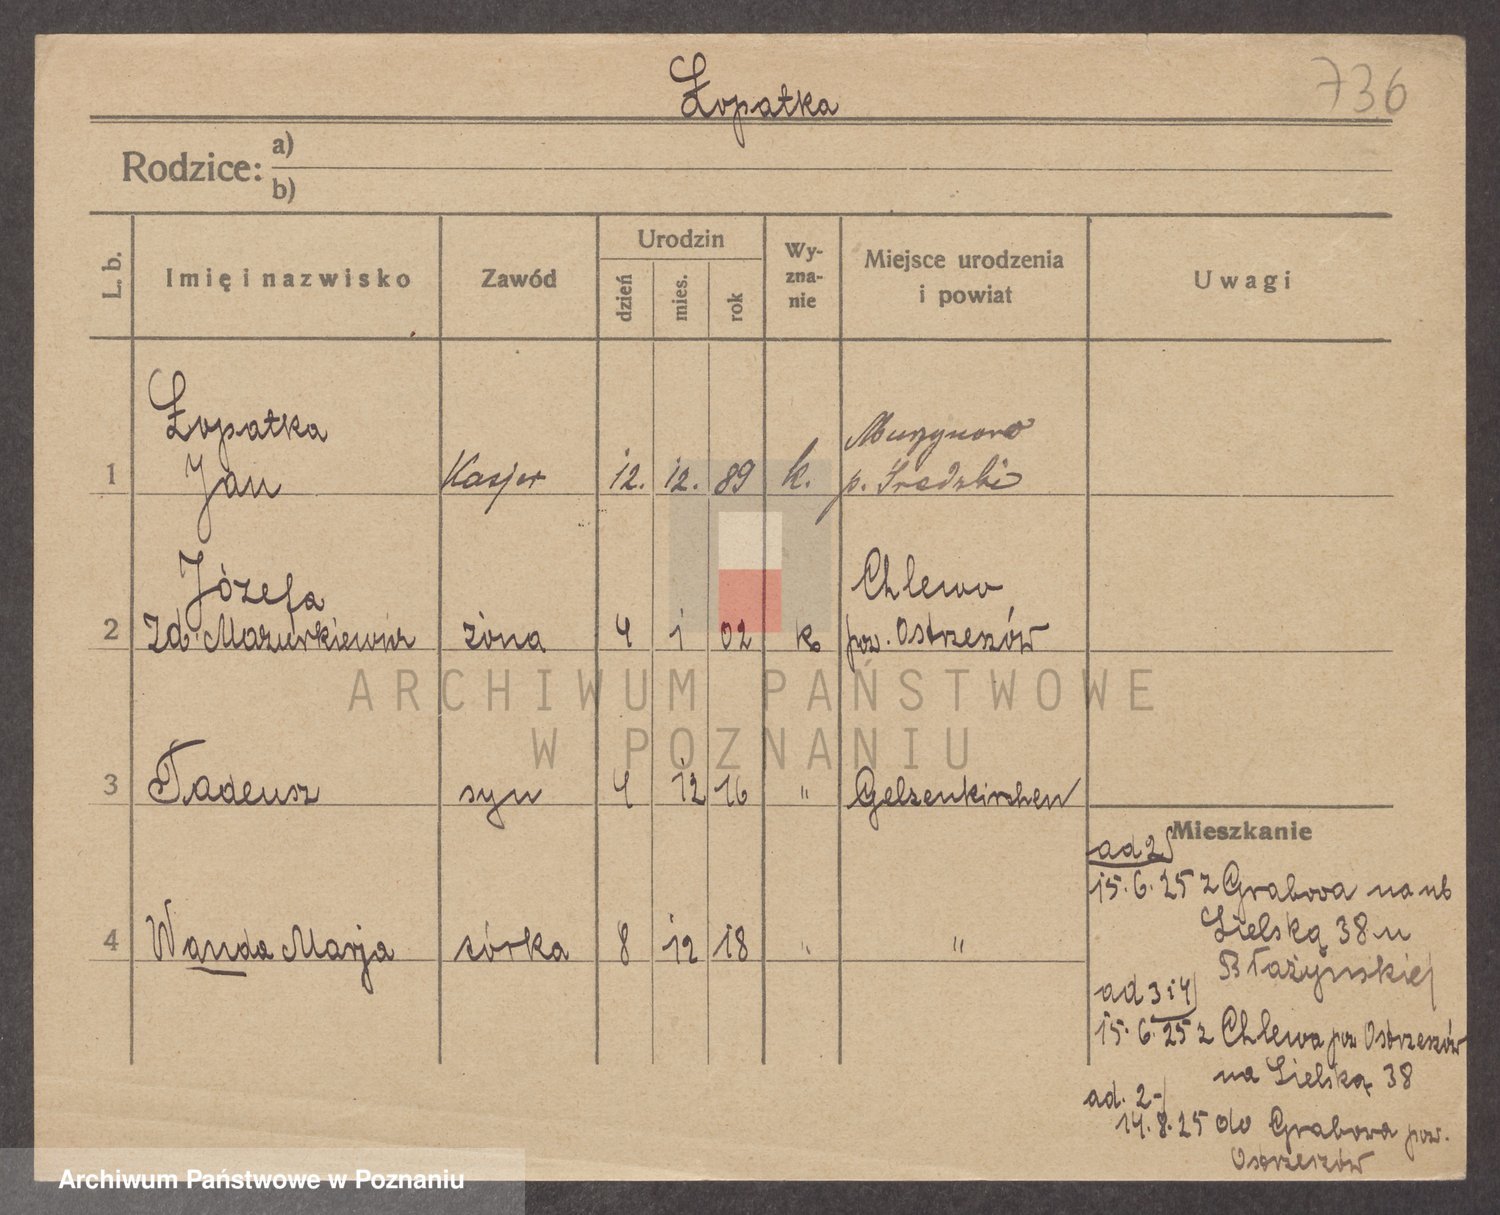 Łopatka
736
Rodzice: a)
b)
L. b.
Imię i nazwisko
Zawód
Urodzin
dzień
mies.
rok
Wy-
zna-
nie
Miejsce urodzenia
i powiat
Uwagi
Łopatka
1 Jan Kasjer 12. 12. 89 k.
p. Średzki
Józefa Chlewo
2 Zd. Mazurkiewicz żona 4 1 02 k pow. Ostrzeszów
ARCHIWUM PAŃSTWOWE
W POZNANIU
3 Tadeusz syn 4 12 16 " Gelsenkirchen
4 Wanda Marja córka 8 12 18 " "
Mieszkanie
ad 2)
15.6.25 z Grabowa na ul
38 u
ad 3 i 4)
15.6.25 z Chlewa pow Ostrzeszów
na 38
ad. 2-)
14.8.25 do Grabowa pow.
Ostrzeszów
Archiwum Państwowe w Poznaniu